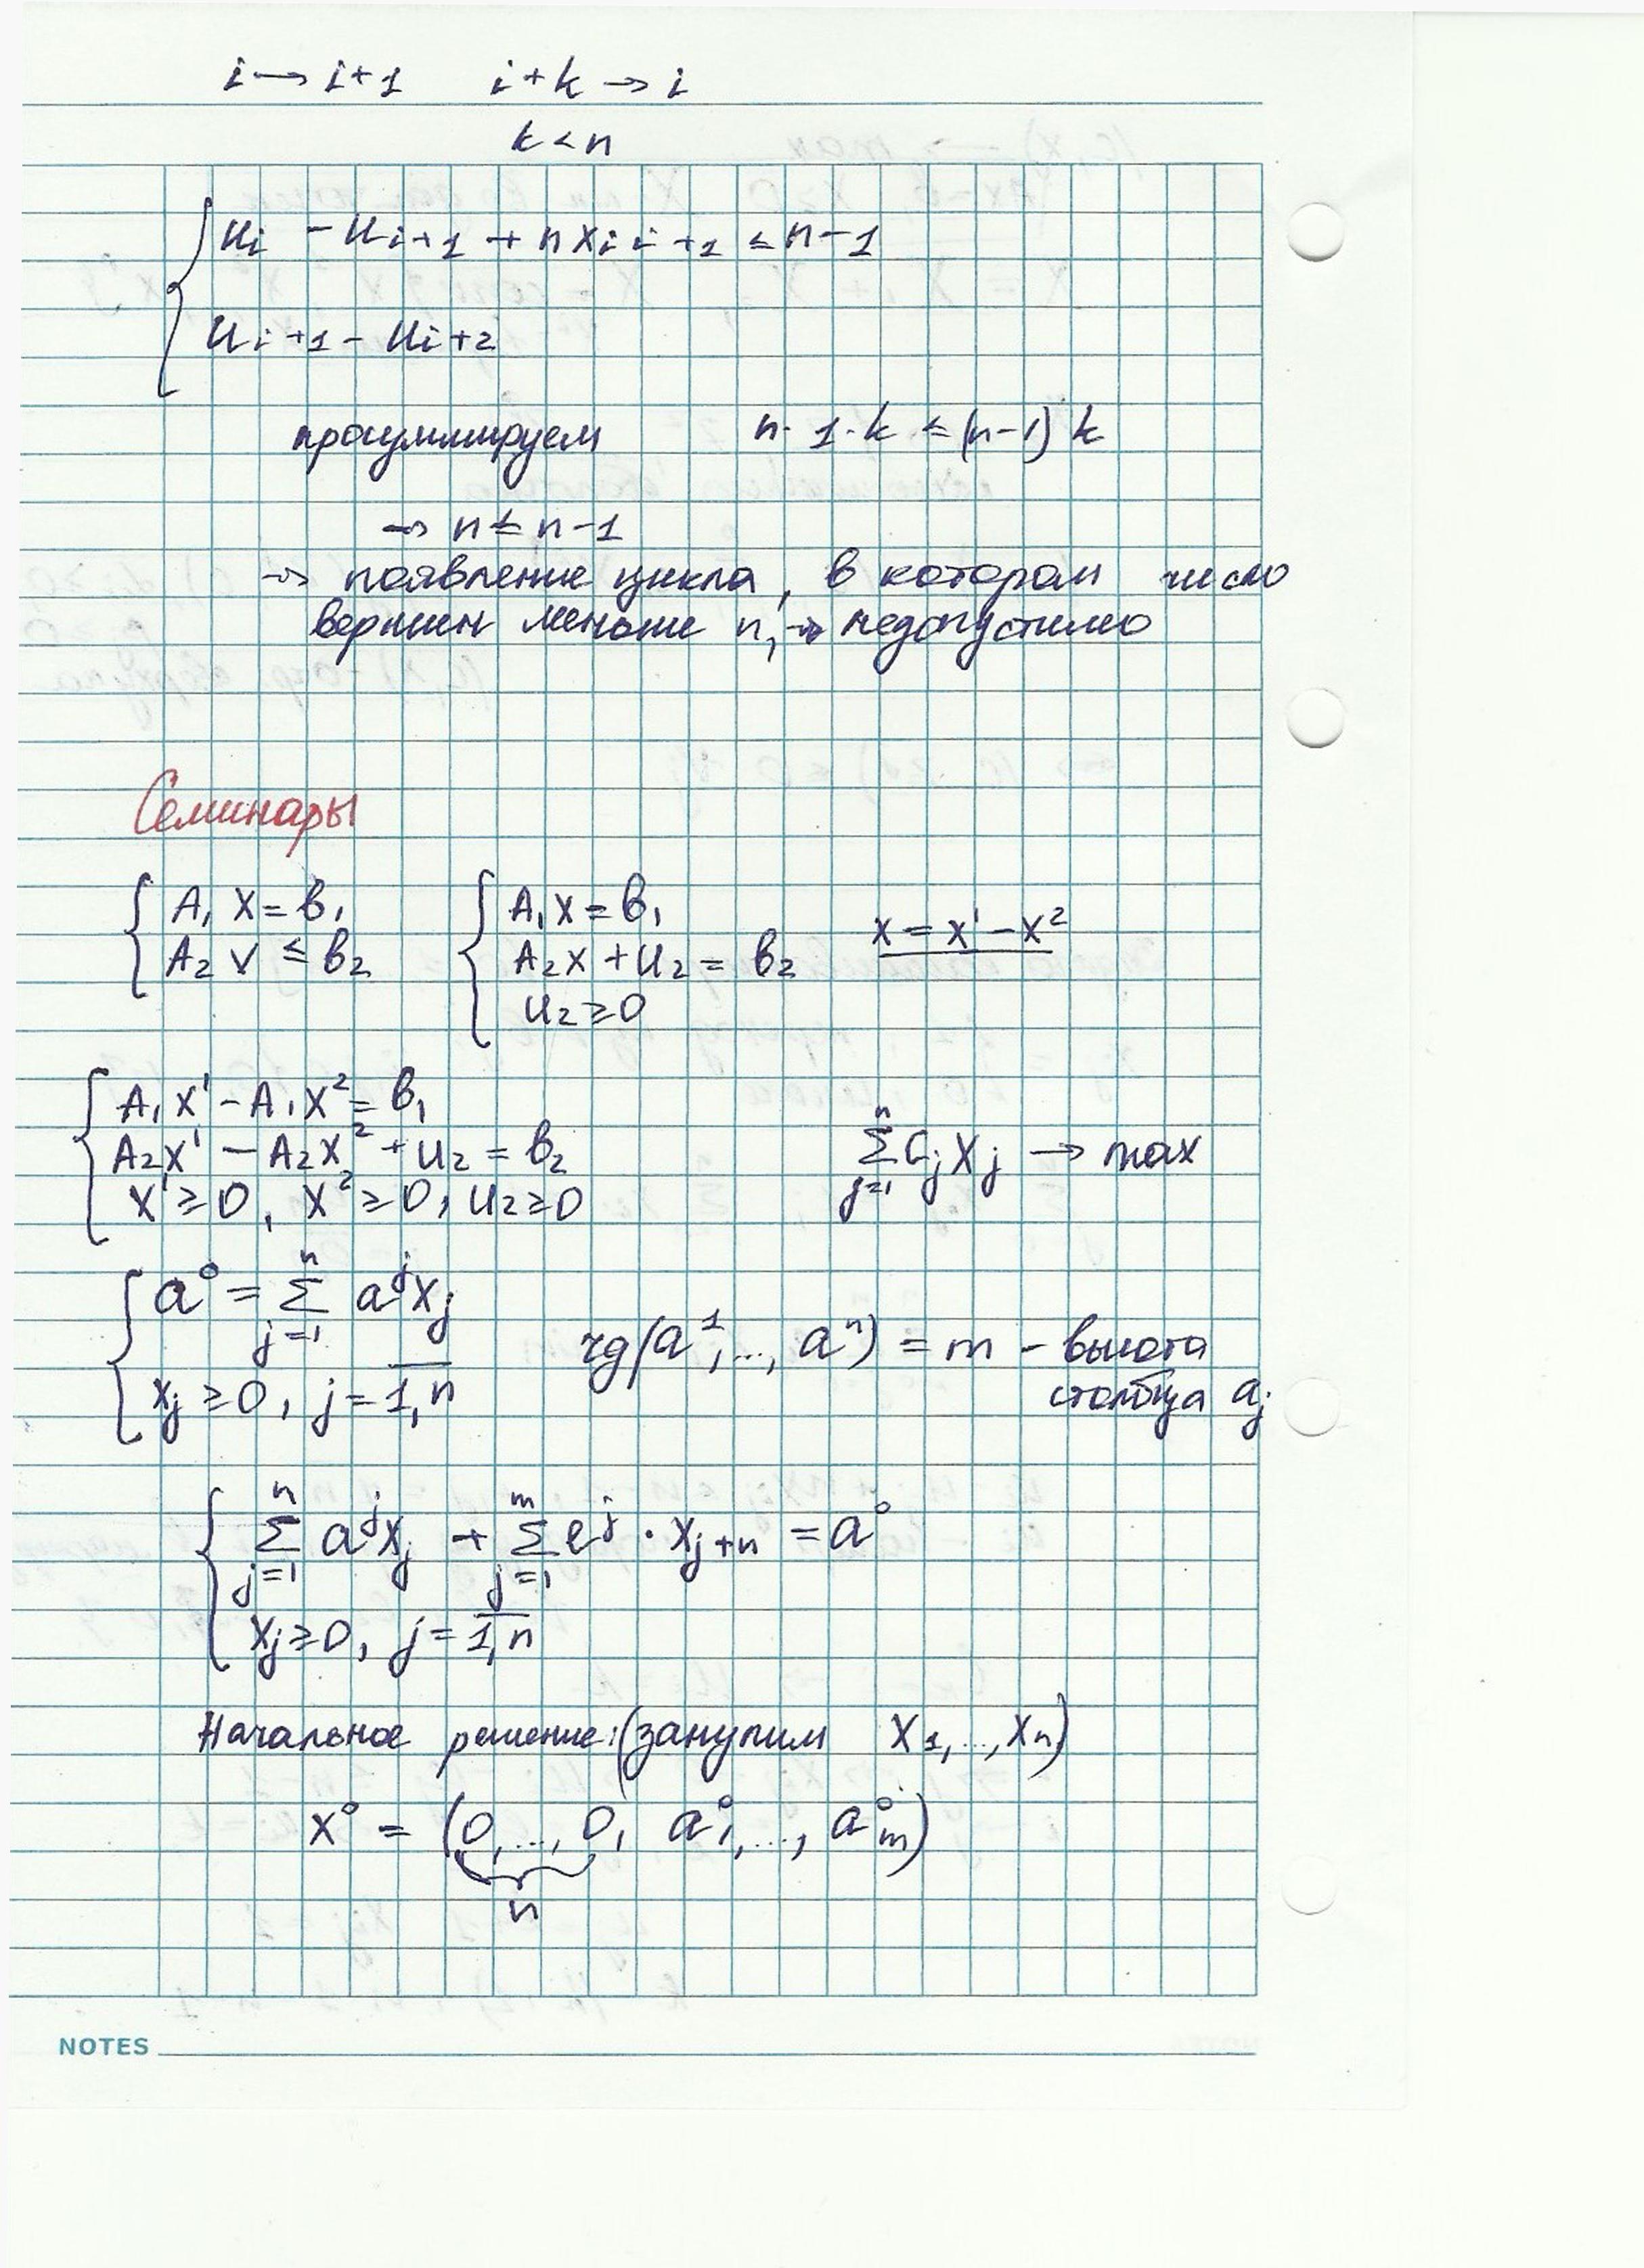 i → i+1    i+k → i
k < n
u_i − u_{i+1} + n x_{i i+1} ≤ n−1
u_{i+1} − u_{i+2}
просуммируем    n·1·k ≤ (n−1) k
→ n ≤ n−1
→ появление цикла, в котором число
вершин меньше n, → недопустимо
Семинары
A₁ x = b₁    A₁ x = b₁    x = x¹ − x²
A₂ x ≤ b₂    A₂ x + u₂ = b₂
u₂ ≥ 0
A₁ x¹ − A₁ x² = b₁
A₂ x¹ − A₂ x² + u₂ = b₂    ∑_{j=1}^{n} C_j x_j → max
x¹ ≥ 0, x² ≥ 0, u₂ ≥ 0
a⁰ = ∑_{j=1}^{n} a^j x_j    rg(a¹,..., aⁿ) = m − высота
x_j ≥ 0, j = \overline{1,n}    столбца a_j
∑_{j=1}^{n} a^j x_j + ∑_{j=1}^{m} e^j · x_{j+n} = a⁰
x_j ≥ 0, j = \overline{1,n}
Начальное решение: (занулим x₁,..., x_n)
x⁰ = (0,..., 0, a⁰₁,..., a⁰_m)
n
NOTES